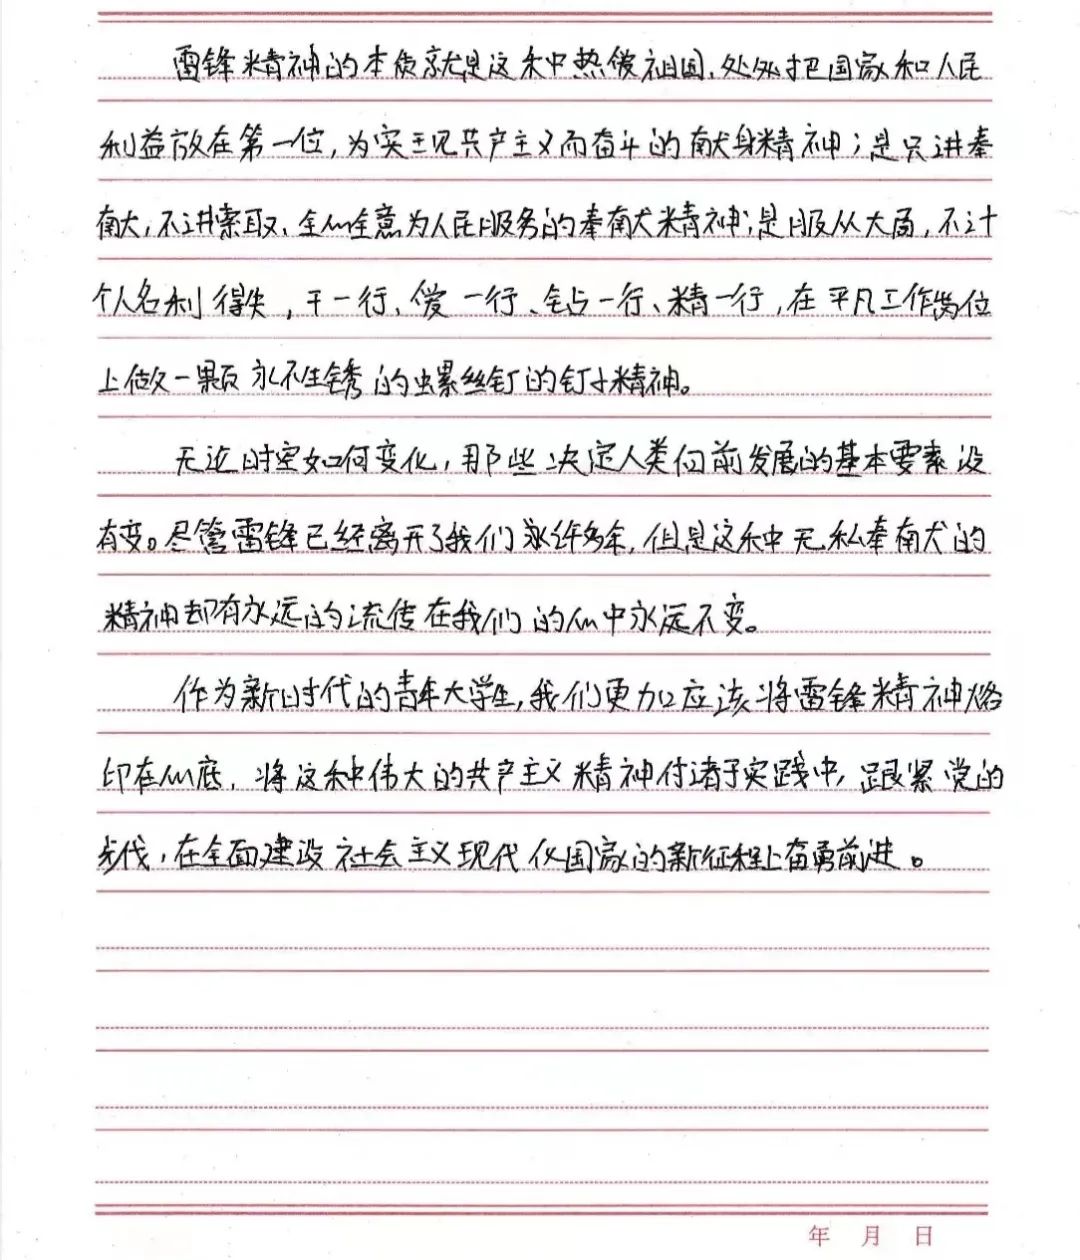 雷锋精神的本质就是这种热爱祖国,处处把国家和人民
利益放在第一位,为实现共产主义而奋斗的献身精神;是只讲奉
献,不讲索取、全心全意为人民服务的奉献精神;是服从大局,不计
个人名利得失,干一行、爱一行、钻一行、精一行,在平凡工作岗位
上做一颗永不生锈的螺丝钉的钉子精神。
无论时空如何变化,那些决定人类向前发展的基本要素没
有变。尽管雷锋已经离开了我们许多年,但是这种无私奉献的
精神却有永远的流传在我们的心中永远不变。
作为新时代的青年大学生,我们更加应该将雷锋精神烙
印在心底,将这种伟大的共产主义精神付诸于实践中,跟紧党的
步伐,在全面建设社会主义现代化国家的新征程上奋勇前进。
年 月 日